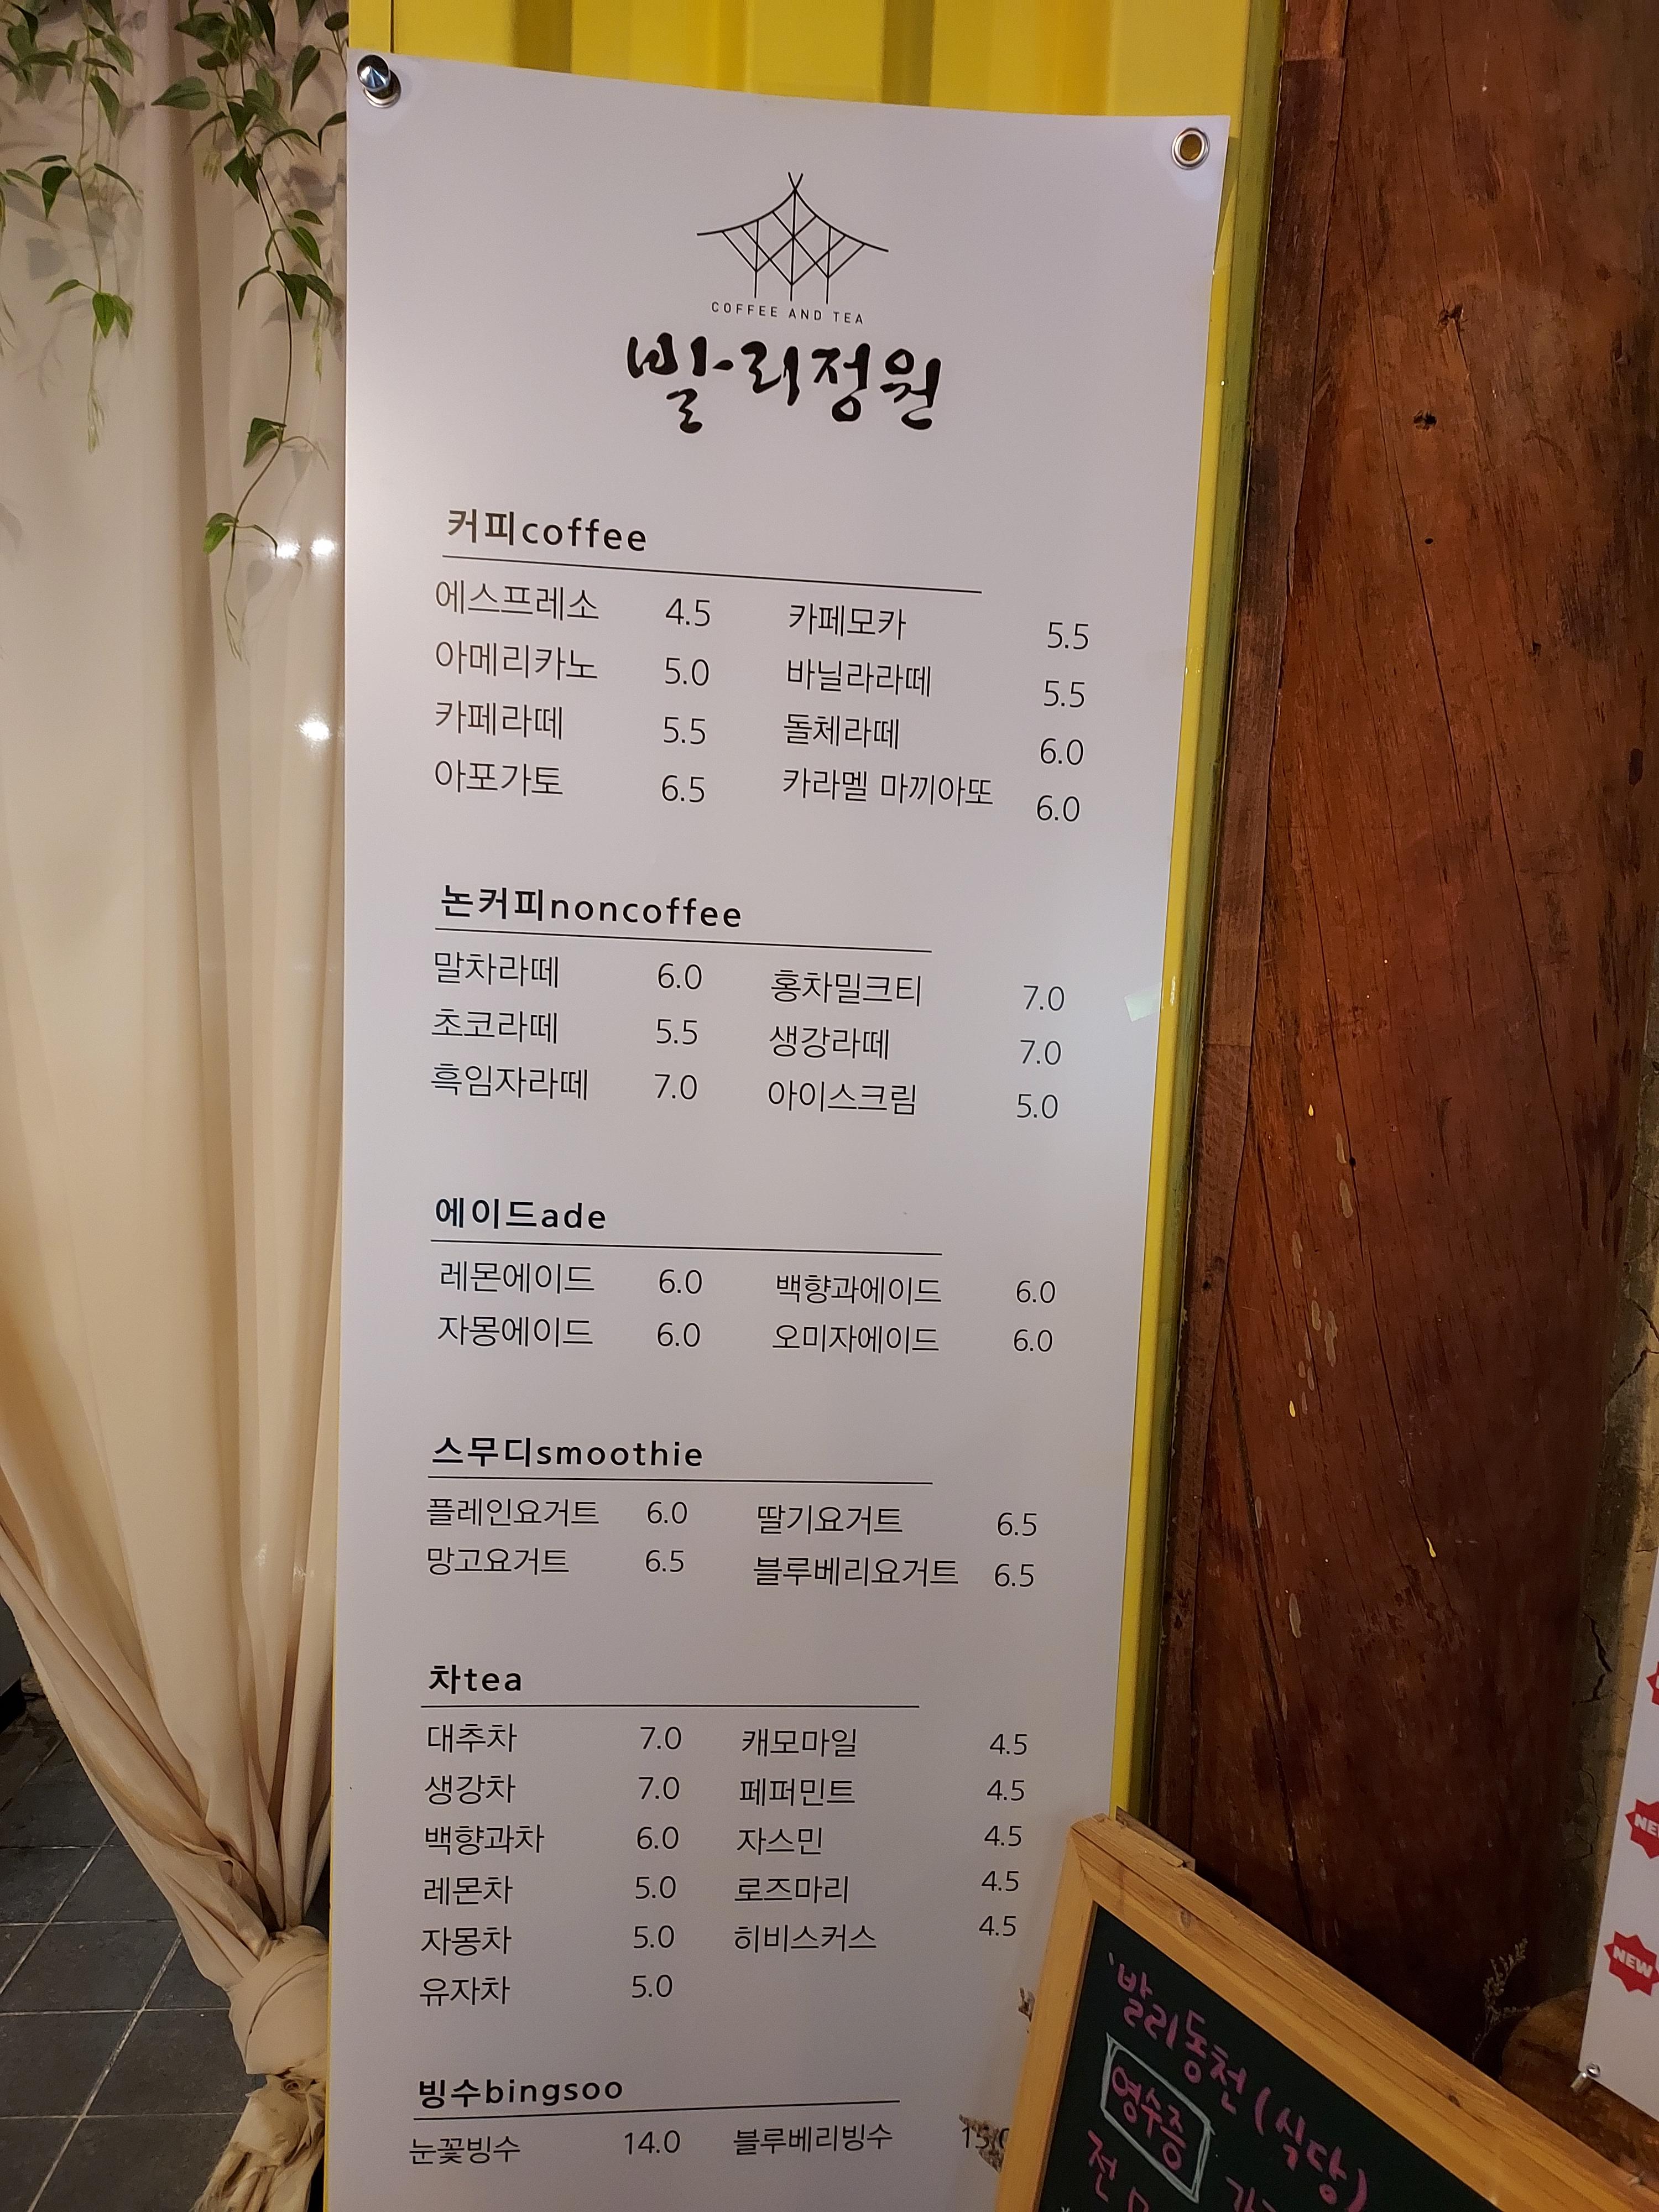 COFFEE AND TEA
발리정원
커피coffee
에스프레소 4.5 카페모카 5.5
아메리카노 5.0 바닐라라떼 5.5
카페라떼 5.5 돌체라떼 6.0
아포가토 6.5 카라멜 마끼아또 6.0
논커피noncoffee
말차라떼 6.0 홍차밀크티 7.0
초코라떼 5.5 생강라떼 7.0
흑임자라떼 7.0 아이스크림 5.0
에이드ade
레몬에이드 6.0 백향과에이드 6.0
자몽에이드 6.0 오미자에이드 6.0
스무디smoothie
플레인요거트 6.0 딸기요거트 6.5
망고요거트 6.5 블루베리요거트 6.5
차tea
대추차 7.0 캐모마일 4.5
생강차 7.0 페퍼민트 4.5
백향과차 6.0 자스민 4.5
레몬차 5.0 로즈마리 4.5
자몽차 5.0 히비스커스 4.5
유자차 5.0
빙수bingsoo
눈꽃빙수 14.0 블루베리빙수
'발리동천(식당)
영수증
전
NEW